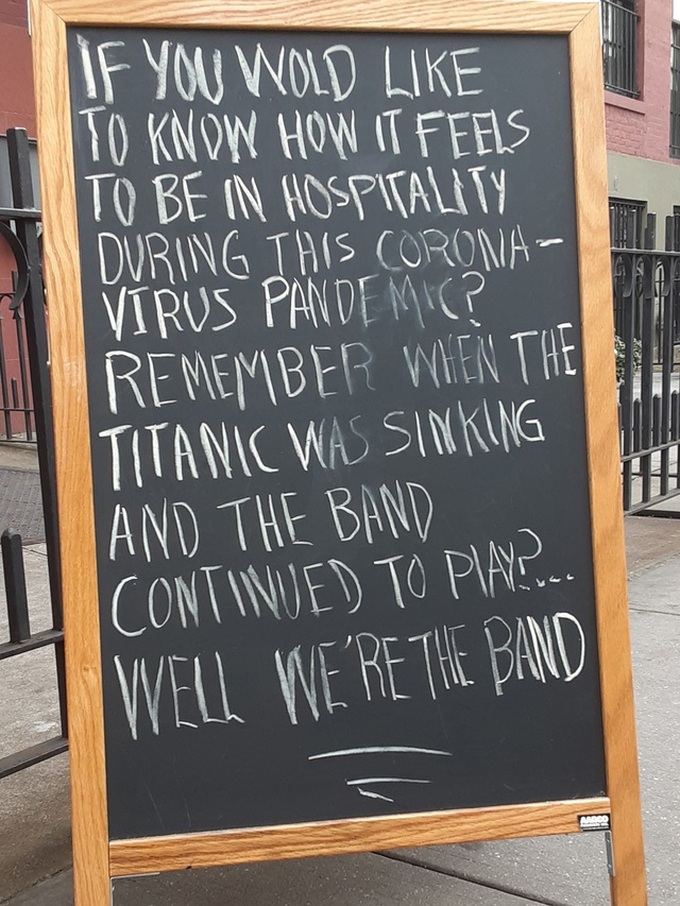 IF YOU WOLD LIKE
TO KNOW HOW IT FEELS
TO BE IN HOSPITALITY
DURING THIS CORONA-
VIRUS PANDEMIC?
REMEMBER WHEN THE
TITANIC WAS SINKING
AND THE BAND
CONTINUED TO PLAY?...
WELL WE'RE THE BAND
AARCO